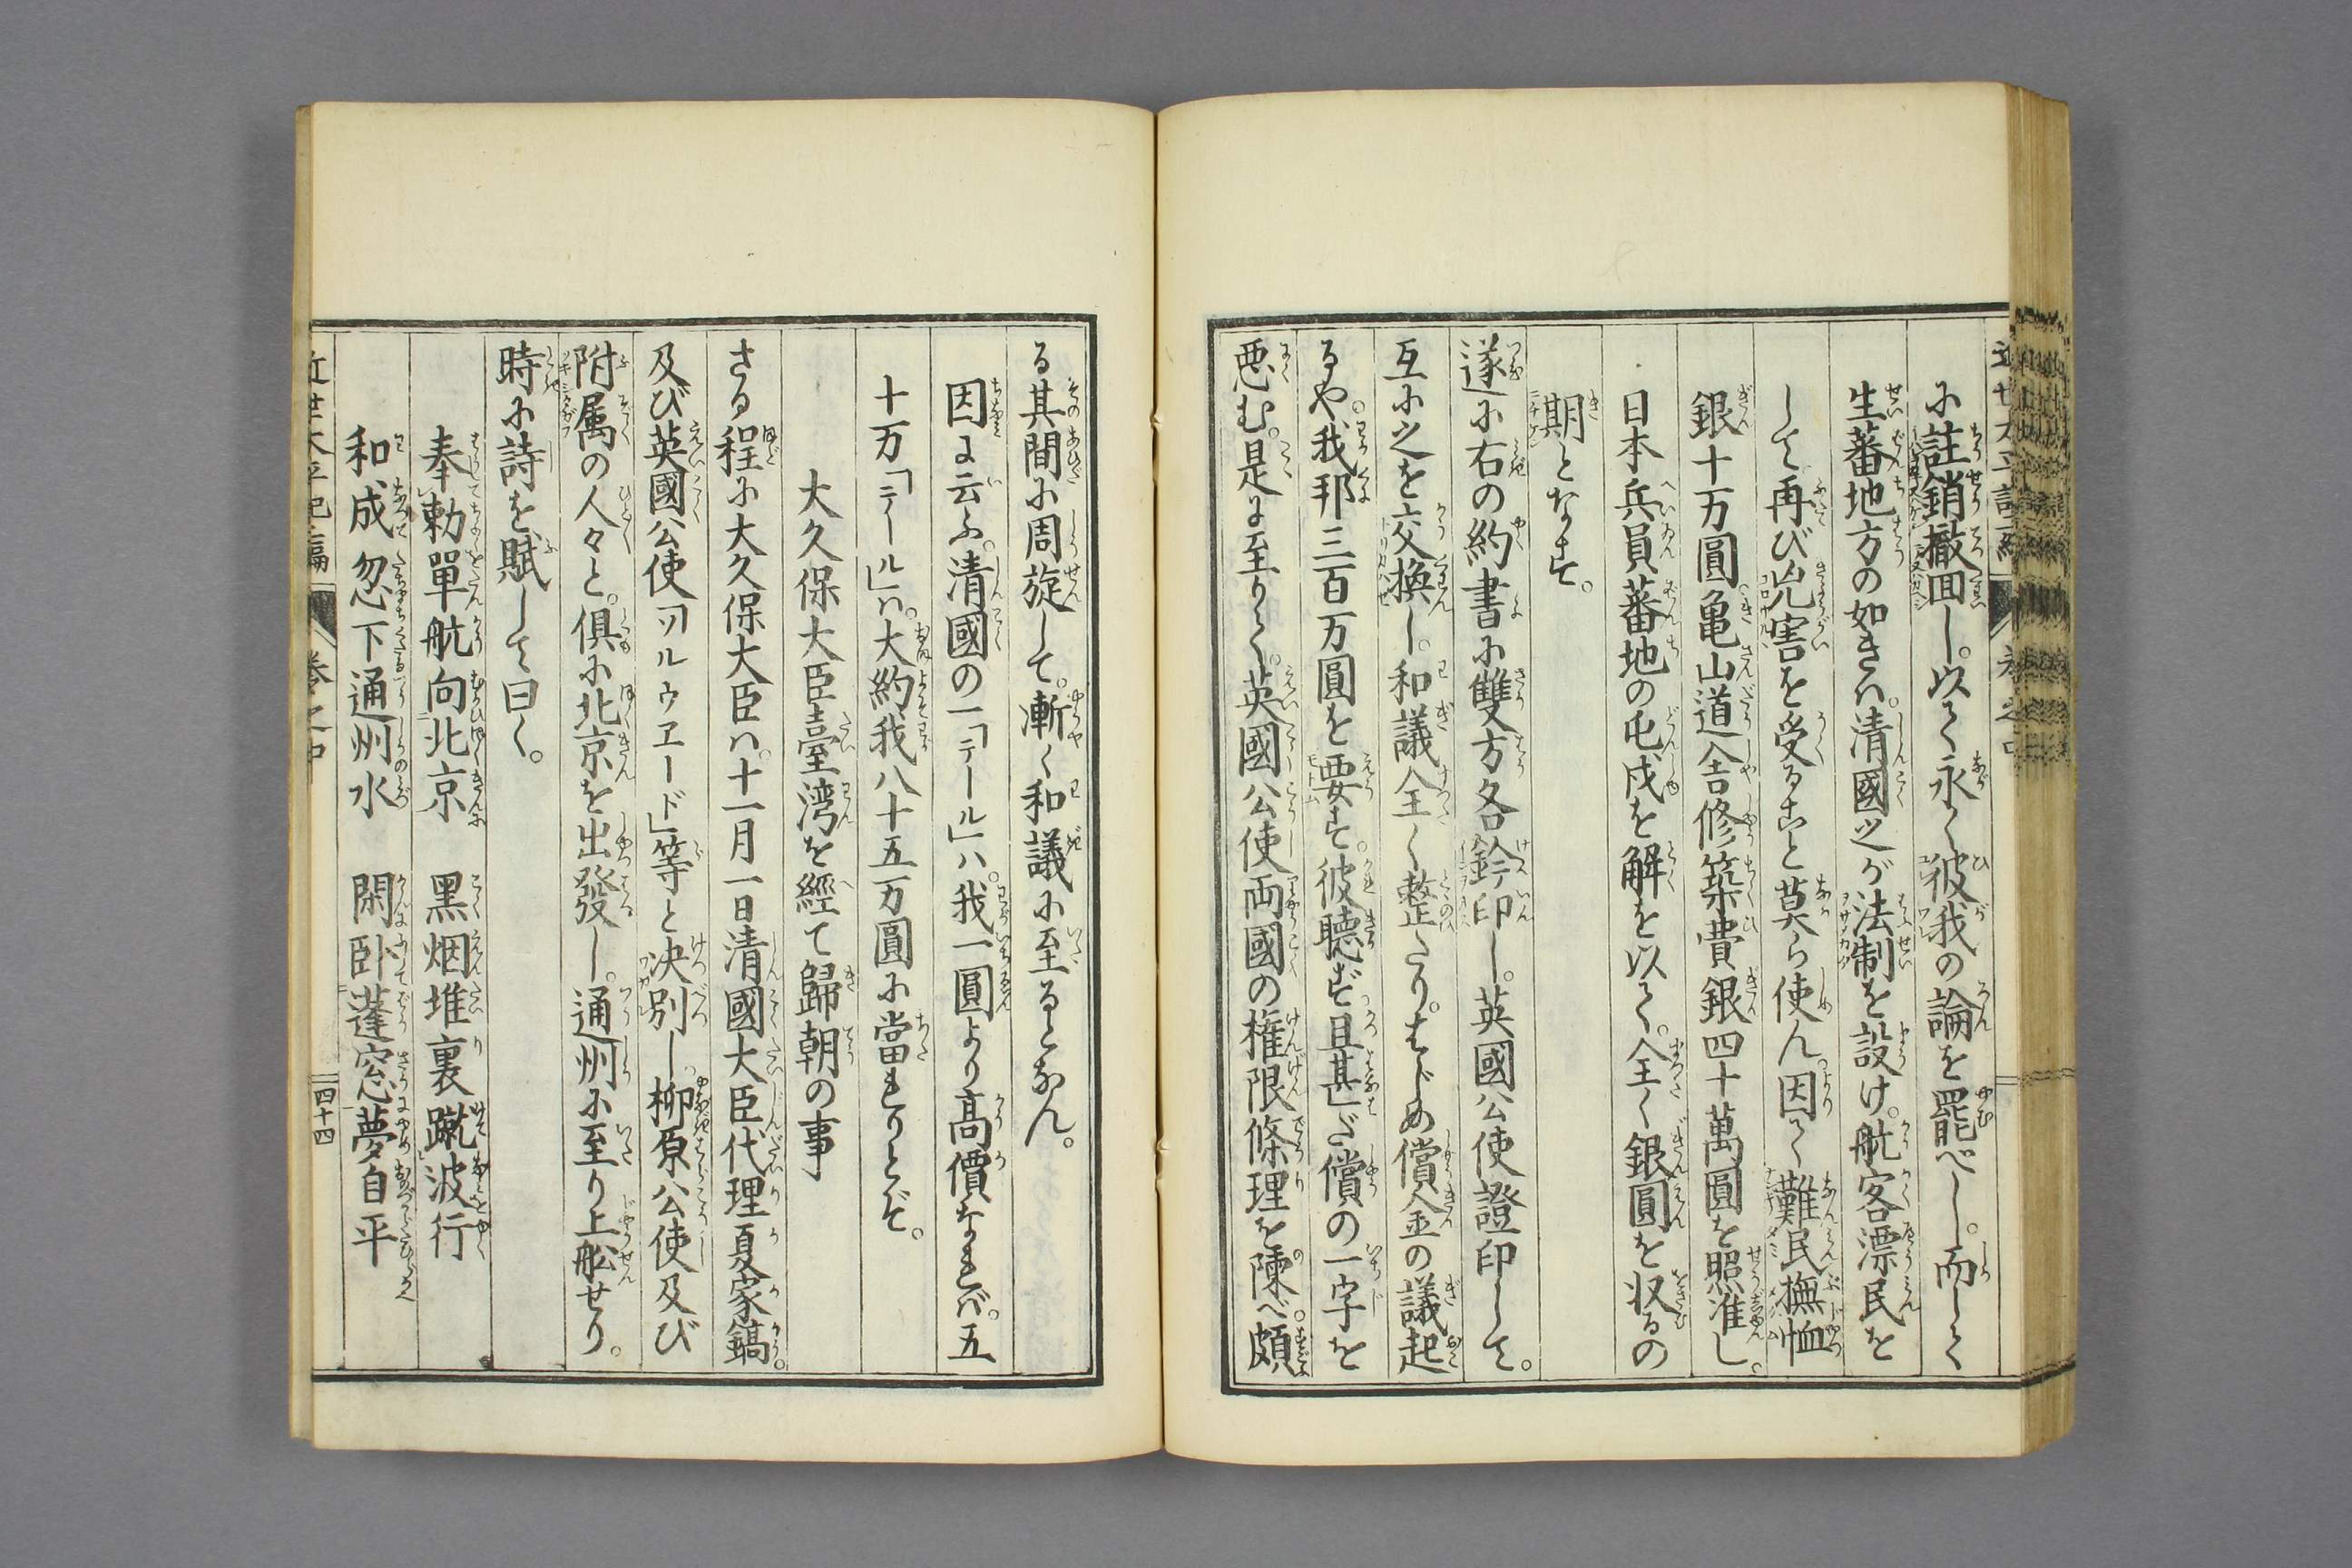 に註銷撤回し。以て永く彼我の論を罷べし。而して
生蕃地方の如きハ。清國之が法制を設け。航客漂民を
して再び兇害を受るヿ莫ら使ん。因て難民撫恤
銀十万圓。亀山道舎修築費銀四十萬圓を照准し。
日本兵員蕃地の屯戍を解を以て。全く銀圓を収るの
期となす。
遂に右の約書に雙方各鈐印し。英國公使證印して。
互に之を交換し。和議全く整たり。はじめ償金の議起
るや。我邦三百万圓を要す。彼聴ず。且甚だ償の一字を
悪む。是に至りて。英國公使両國の権限條理を陳べ。頗
る其間に周旋して。漸く和議に至るとなん。
因に云ふ。清國の一「テール」ハ。我一圓より高價なれバ。五
十万「テール」ハ。大約我八十五万圓に當れりとぞ。
大久保大臣臺湾を經て歸朝の事
さる程に大久保大臣ハ。十一月一日清國大臣代理夏家鎬。
及び英國公使「ヲルウヱード」等と决別し。柳原公使及び
附属の人々と。倶に北京を出發し。通州に至り上舩せり。
時に詩を賦して曰く。
奉勅單航向北京 黑烟堆裏蹴波行
和成忽下通州水 閑卧蓬窓夢自平
近世太平記二編 巻之中 四十四